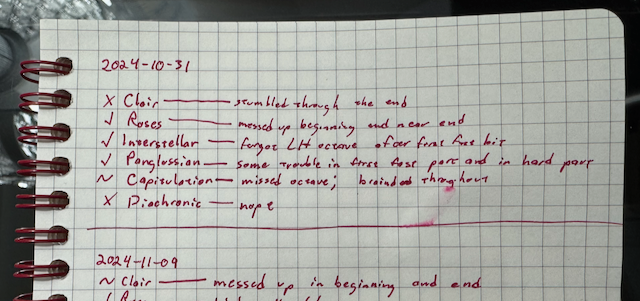 2024-10-31
X Clair — stumbled through the end
✓ Roses — messed up beginning and near end
✓ Interstellar — forgot LH octave after first fast bit
✓ Panglossian — some trouble in first fast part and in hard part
~ Capitulation — missed octave; braindead throughout
X Diachronic — nope
2024-11-09
~ Clair — messed up in beginning and end